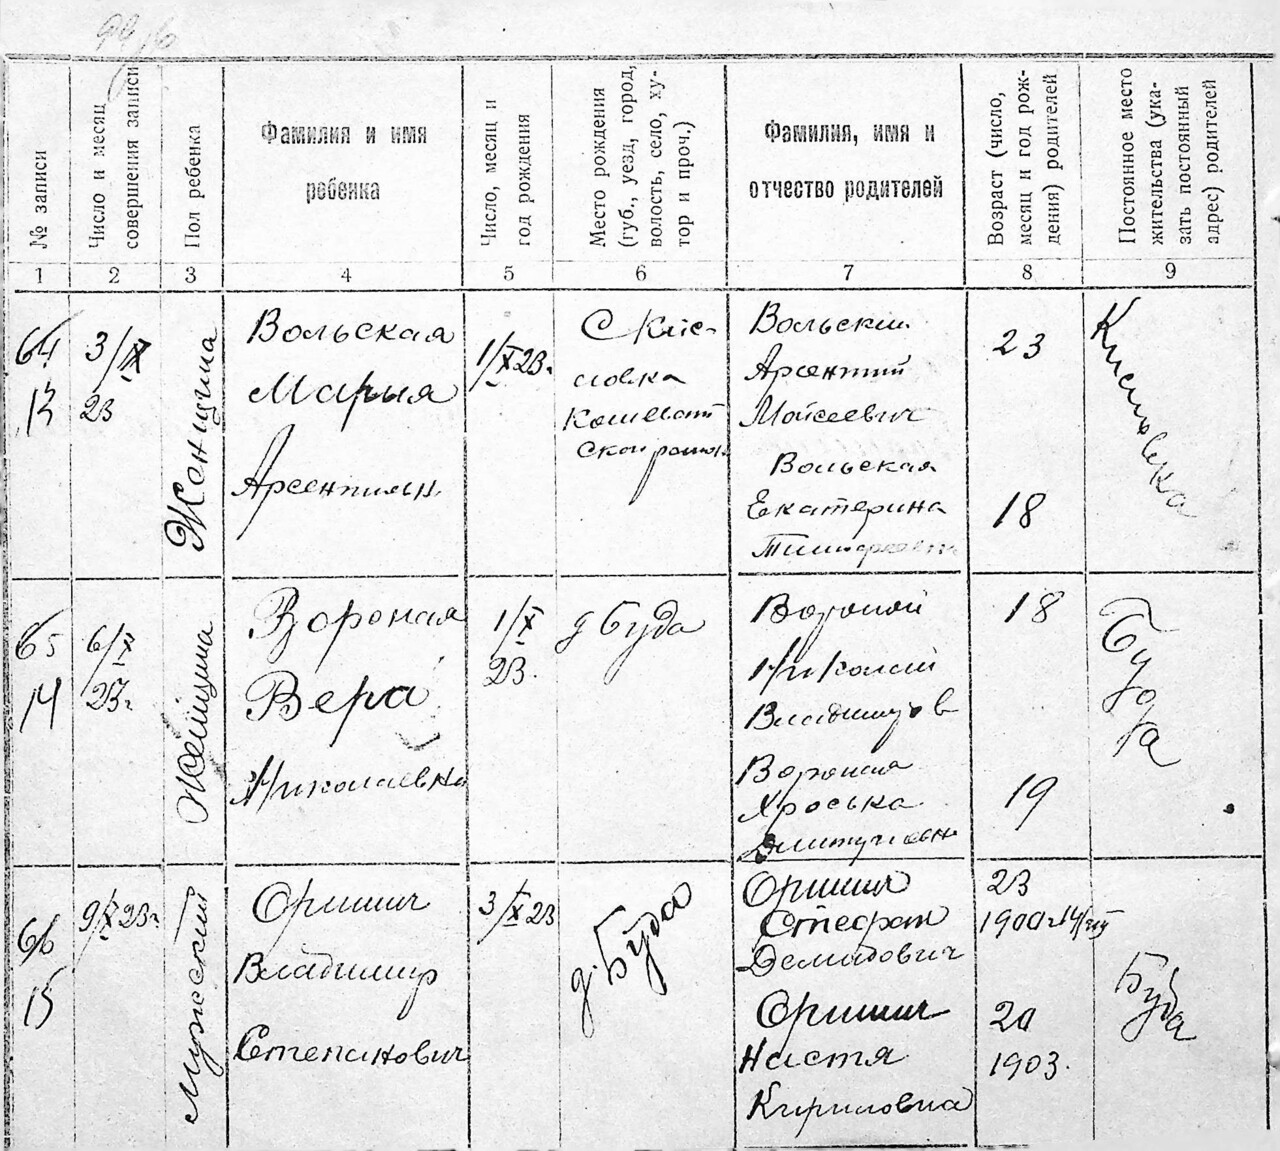 № записи
Число и месяц
совершения записи
Пол ребенка
Фамилия и имя
ребенка
Число, месяц и
год рождения
Место рождения
(губ., уезд, город,
волость, село, ху-
тор и проч.)
Фамилия, имя и
отчество родителей
Возраст (число,
месяц и год рож-
дения) родителей
Постоянное место
жительства (ука-
зать постоянный
адрес) родителей
1 2 3 4 5 6 7 8 9
64
13
3/IX
23
Женщина
Вольская
Мария
Арсентиевн.
1/X 23г.
С Кис-
ловка
Вольский
Арсентий
Мойсеевич
Вольская
Екатерина
Тимофеевна
23
18
Кисловка
65
14
6/X
23г.
Женщина
Вороная
Вера
Николаевна
1/X
23.
д Буда
Вороной
Николай
Владимиров
Вороная
Хроська
Дмитриевн
18
19
Буда
66
15
9/X 23г.
Мужеский
Оришич
Владимир
Степанович
3/X 23
д. Буда
Оришич
Стефан
Демидович
Оришич
Настя
Кириловна
23
20
1903.
Буда